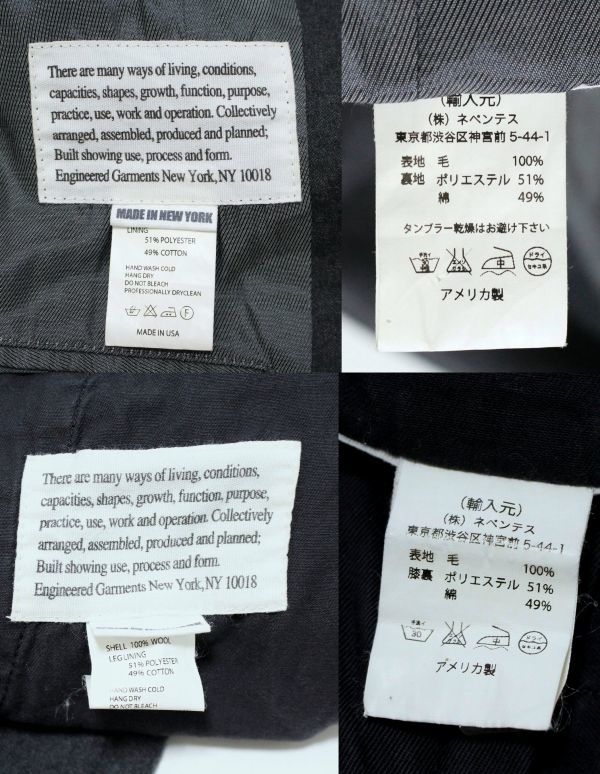 There are many ways of living, conditions,
capacities, shapes, growth, function, purpose,
practice, use, work and operation. Collectively
arranged, assembled, produced and planned;
Built showing use, process and form.
Engineered Garments New York, NY 10018
MADE IN NEW YORK
LINING
51% POLYESTER
49% COTTON
HAND WASH COLD
HANG DRY
DO NOT BLEACH
PROFESSIONALLY DRYCLEAN
F
MADE IN USA
(輸入元)
(株) ネペンテス
東京都渋谷区神宮前 5-44-1
表地 毛 100%
裏地 ポリエステル 51%
綿 49%
タンブラー乾燥はお避け下さい
手洗イ 30 エンソ サラシ 中 ドライ セキユ系
アメリカ製
There are many ways of living, conditions,
capacities, shapes, growth, function, purpose,
practice, use, work and operation. Collectively
arranged, assembled, produced and planned;
Built showing use, process and form.
Engineered Garments New York, NY 10018
SHELL 100% WOOL
LEG LINING
51% POLYESTER
49% COTTON
HAND WASH COLD
HANG DRY
DO NOT BLEACH
(輸入元)
(株) ネペンテス
東京都渋谷区神宮前 5-44-1
表地 毛 100%
膝裏 ポリエステル 51%
綿 49%
手洗イ 30 中 ドライ セキユ系
アメリカ製